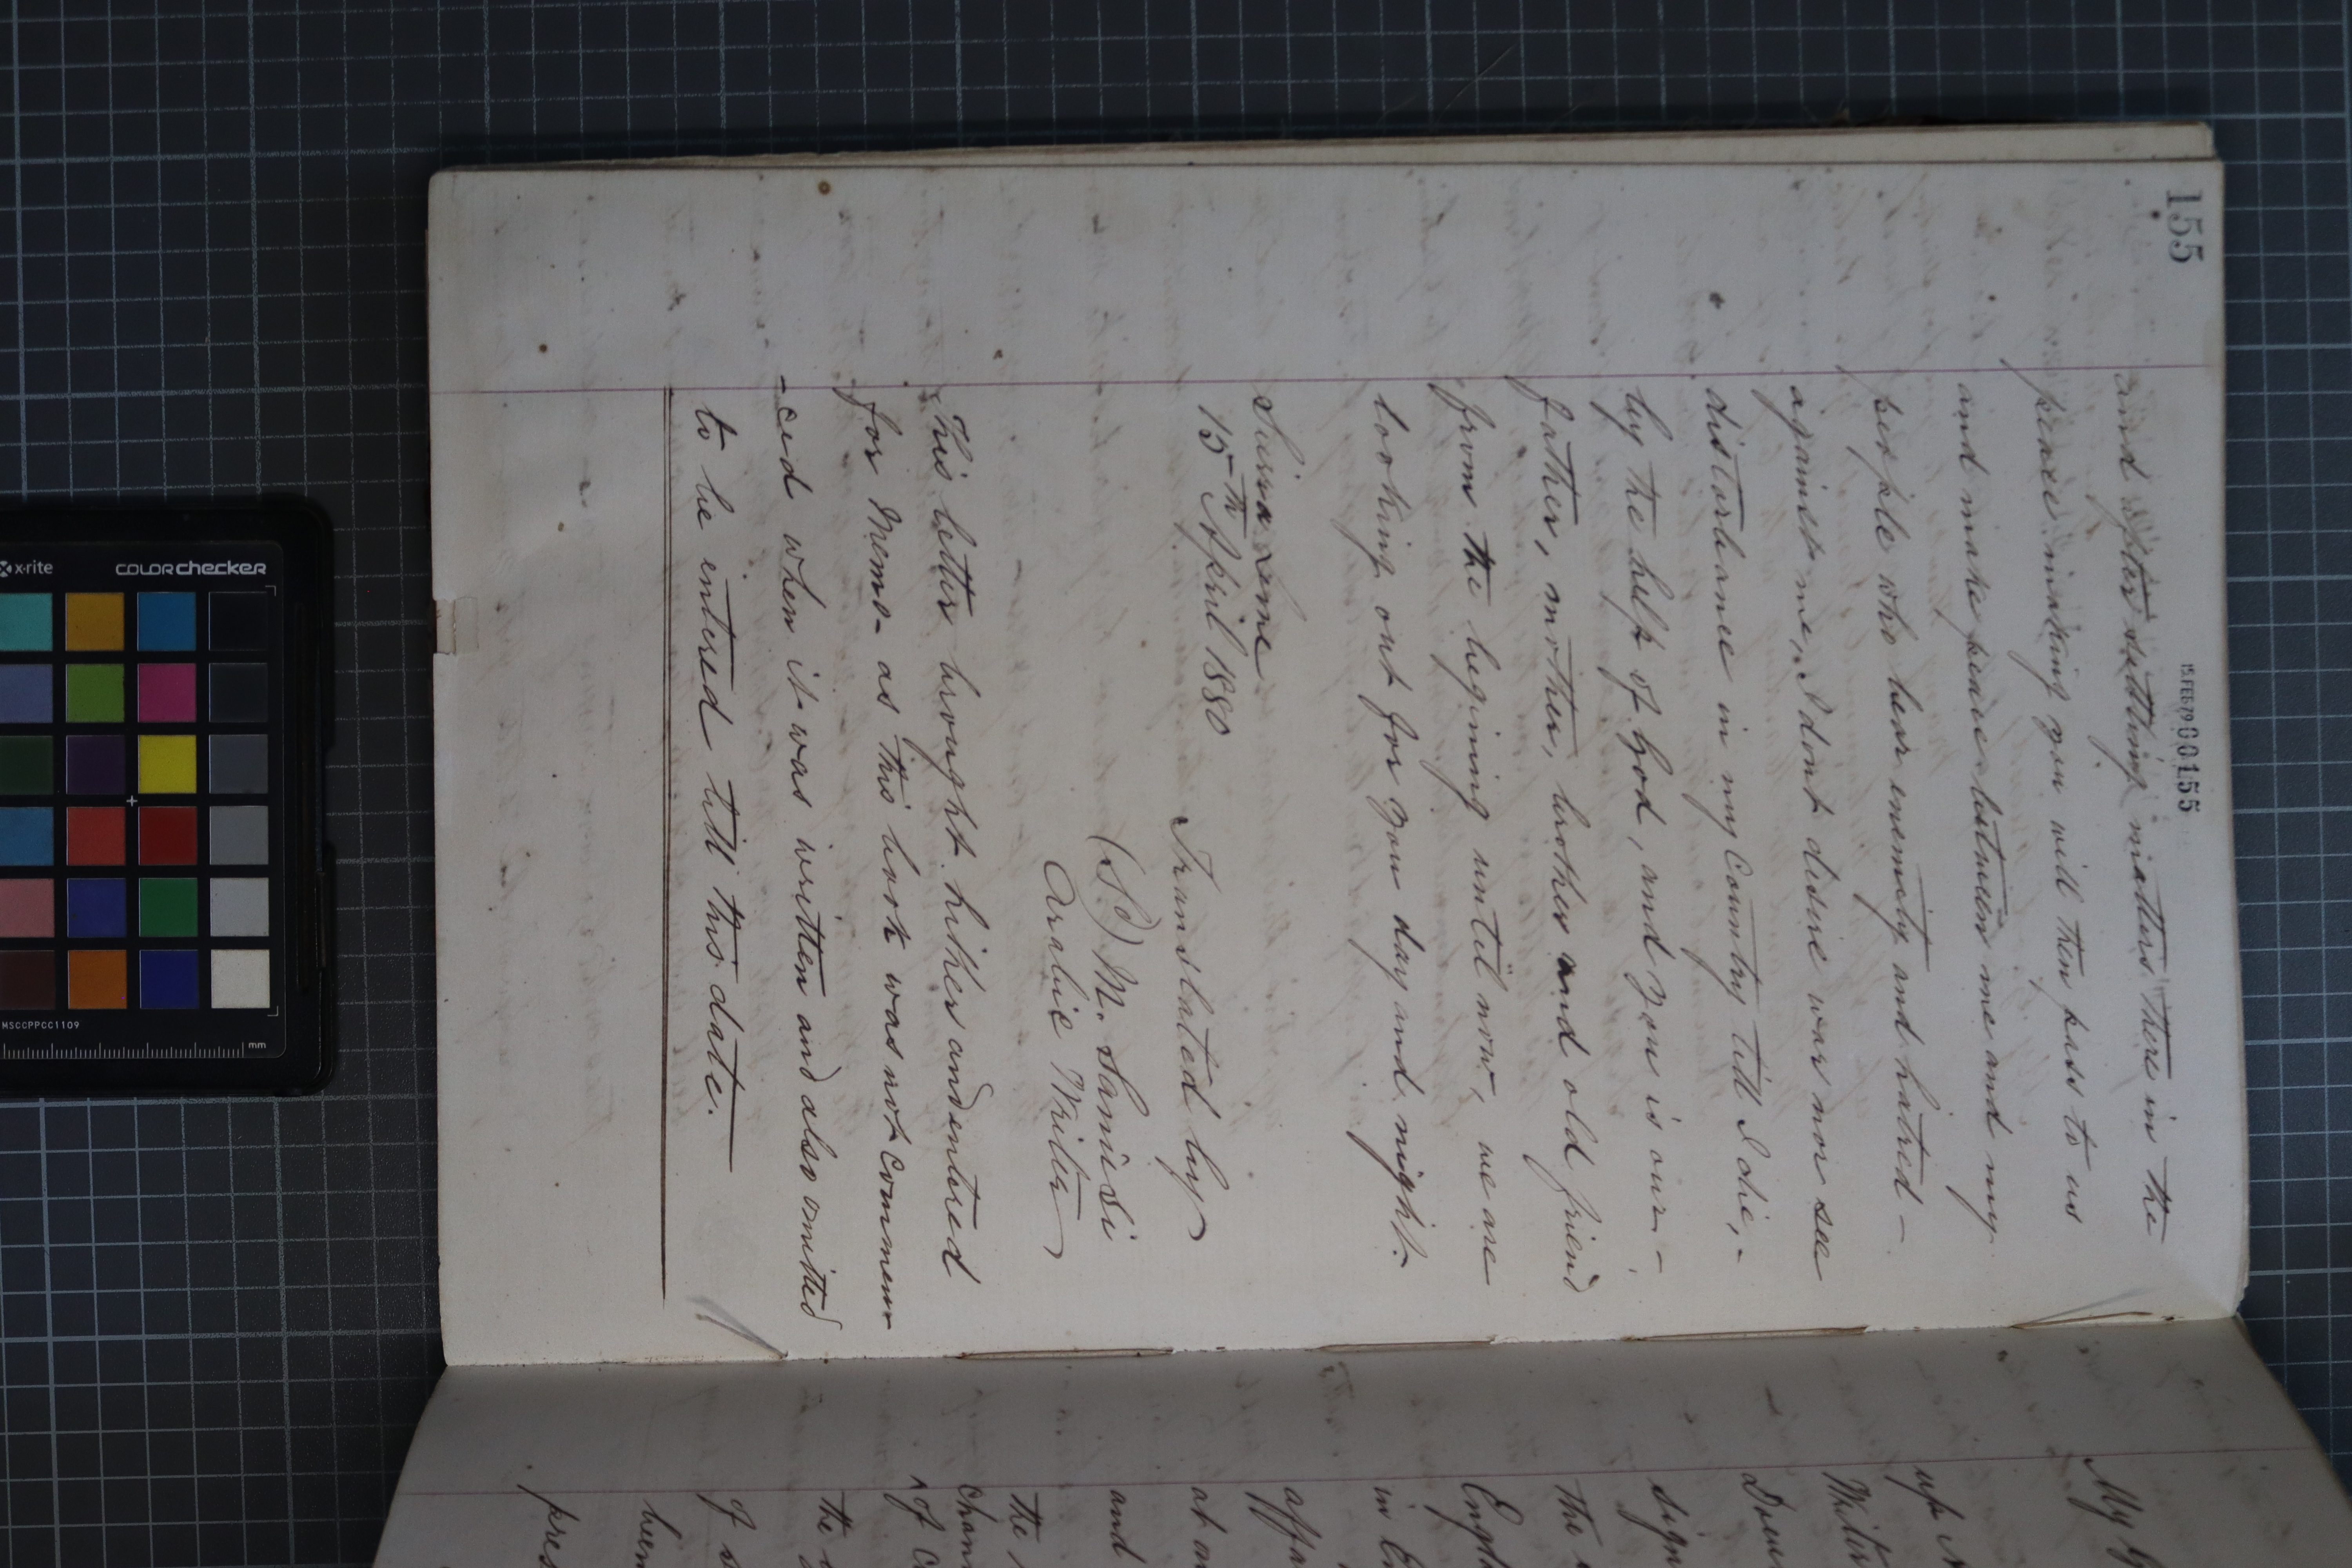 155
15 FEB 79 00155
and after settling matters there in the
peace making you will then pass to us
and make peace between me and my
people who bear enemity and hatred -
against me, I dont desire war nor see
disturbance in my Country till I die, -
by the help of God, and you is our -
father, mother, brother and old friend
from the begining until now, we are
looking out for you day and night.
Sierra Leone
15th April 1880
Translated by
(Sd) M. Sanusi
Arabic Writer
This letter brought hither and entered
for Memo- as this book was not commen
-ced when it was written and also omitted
to be entered till this date.
My
up
Writer
Docu
sign
the
in
at
and
the
of
the
of
been
pres
x-rite
colorchecker
MSCCPPCC1109
mm